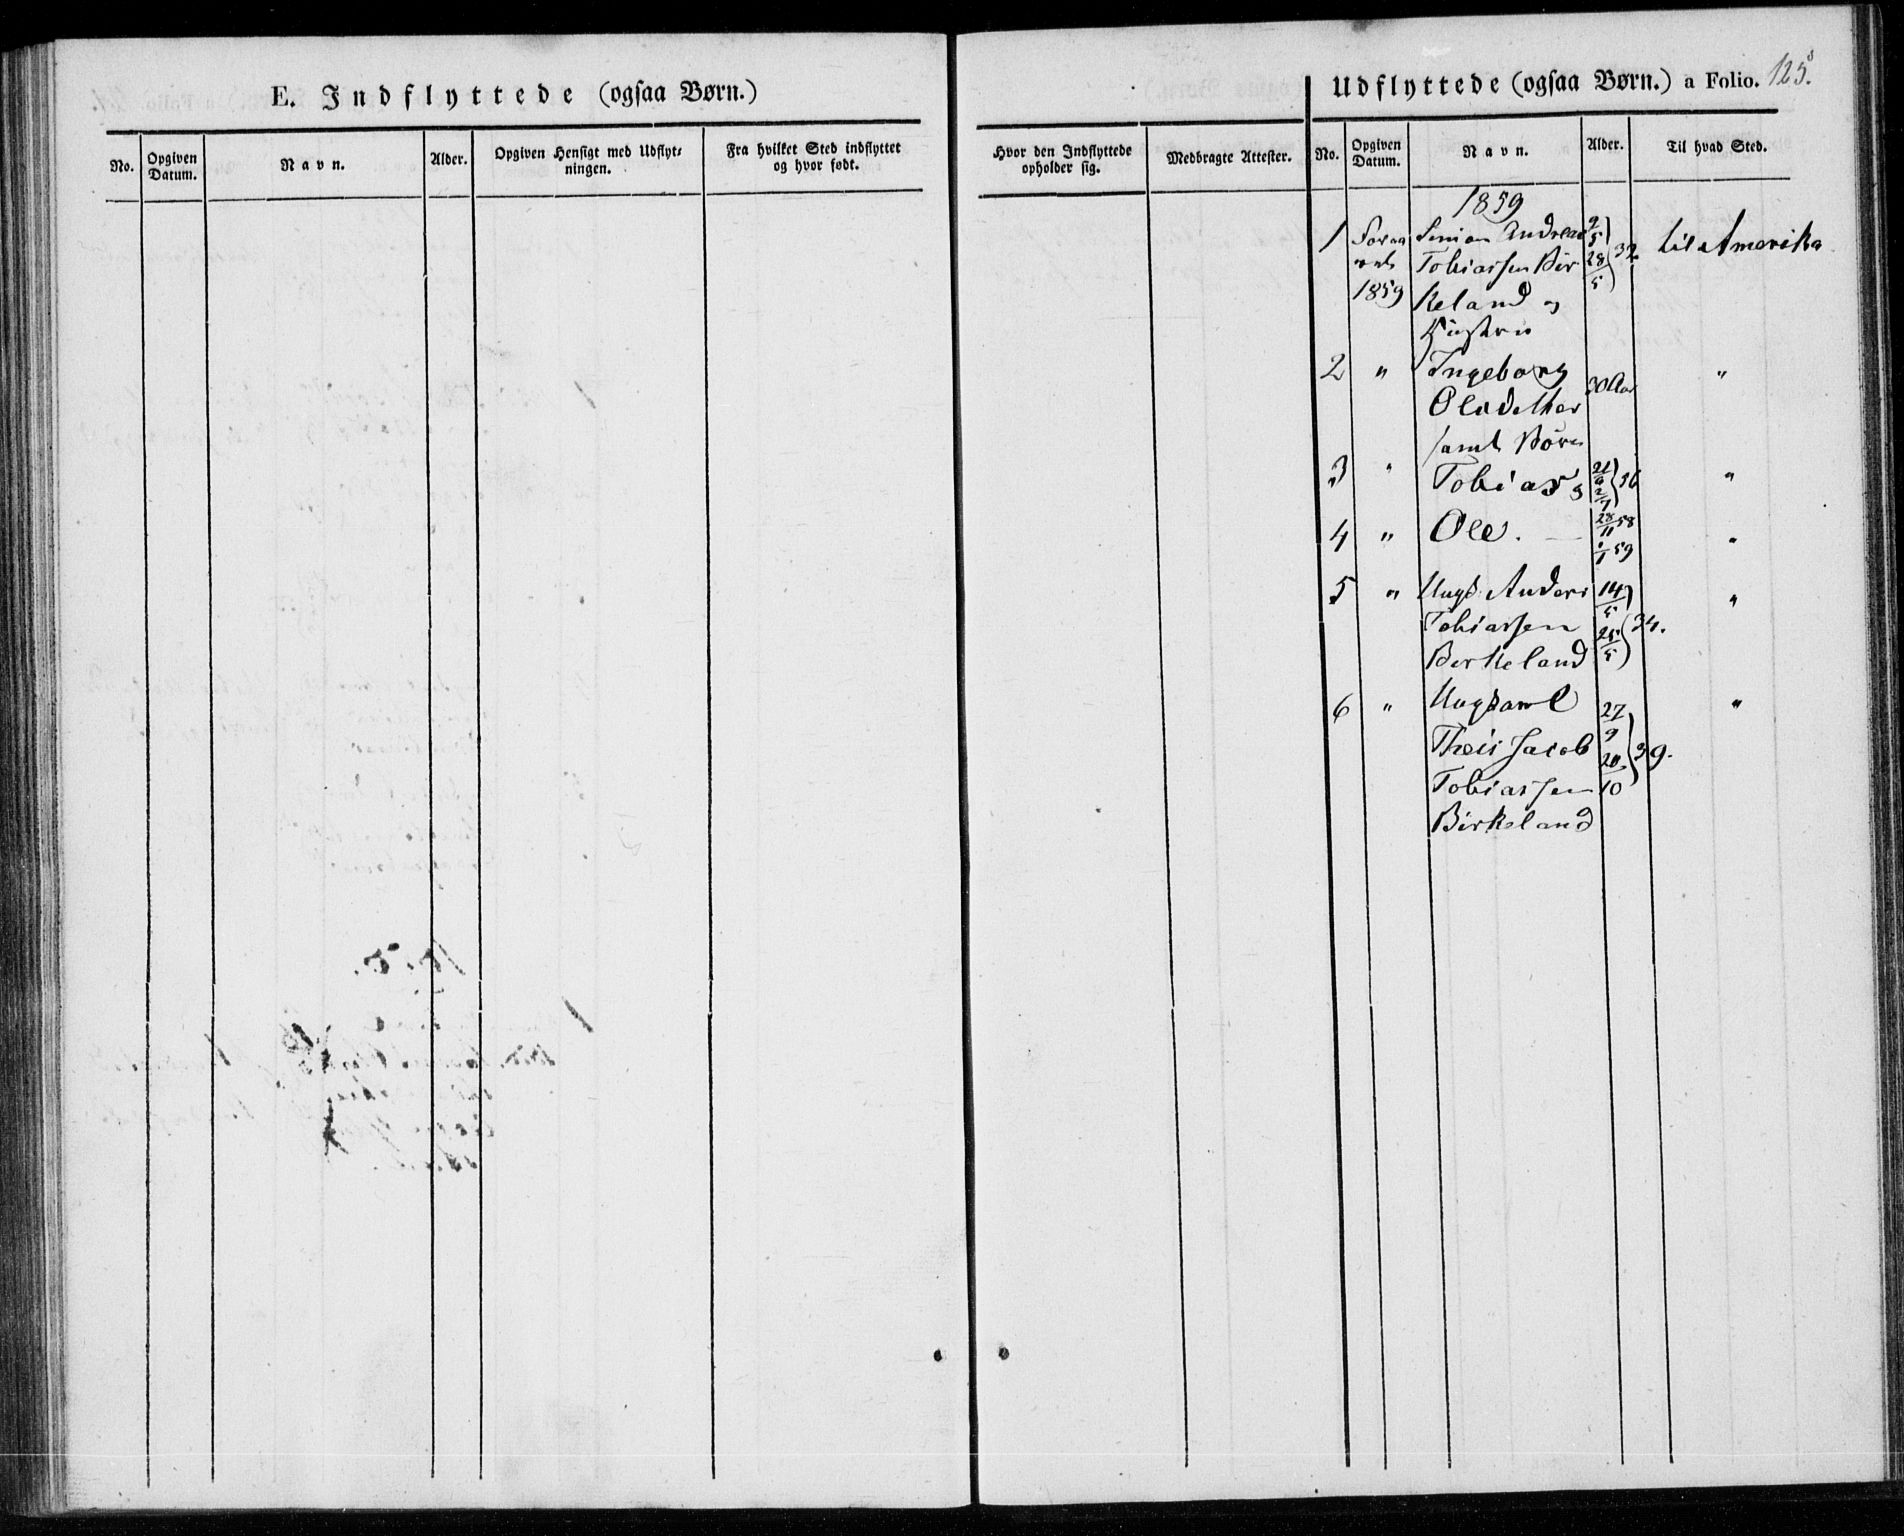 E. Indflyttede (ogsaa Børn.)
No.
Opgiven Datum.
Navn.
Alder.
Opgiven Hensigt med Udflyt-
ningen.
Fra hvilket Sted indflyttet
og hvor født.
Hvor den Indflyttede
opholder sig.
Medbragte Attester.
Udflyttede (ogsaa Børn.) a Folio. 125.
No.
Opgiven Datum.
Navn.
Alder.
Til hvad Sted.
1859
1 Simon Andreas 9/5
Tobiassen Bir 28/5 32 til Amerika
1859 keland og
Hustru
2 " Ingeborg 30 Aar "
Olsdatter
samt Børn
3 " Tobias og 56 "
4 " Ole. 28/11 58 "
/1 59
5 " Ungk. Anders 14/5 "
Tobiassen 34.
Birkeland 25/5
6 " Ungkarl 27/9 "
Theis Jacob 39.
Tobiassen 20/10
Birkeland